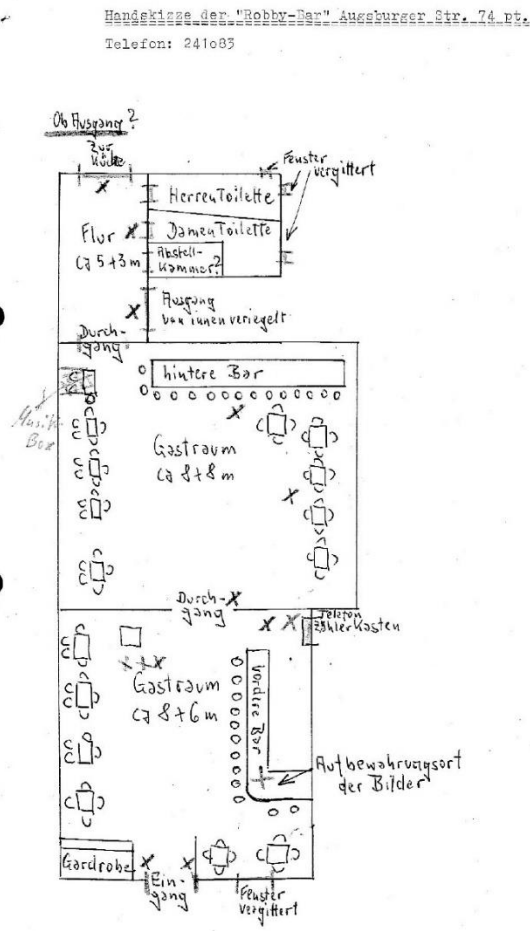 Handskizze der "Robby-Bar" Augsburger Str. 74 pt.
Telefon: 241o83
Ob Ausgang?
Zur
Küche
Fenster
vergittert
HerrenToilette
Flur
ca 5+3 m
DamenToilette
Abstell-
kammer?
Ausgang
von innen verriegelt
Durch-
gang
hintere Bar
Musik
Box
Gastraum
ca 8+8 m
Durch-
gang
Telefon
Zählerkasten
Gastraum
ca 8+6 m
vordere Bar
Aufbewahrungsort
der Bilder
Gardrobe
Ein-
gang
Fenster
vergittert